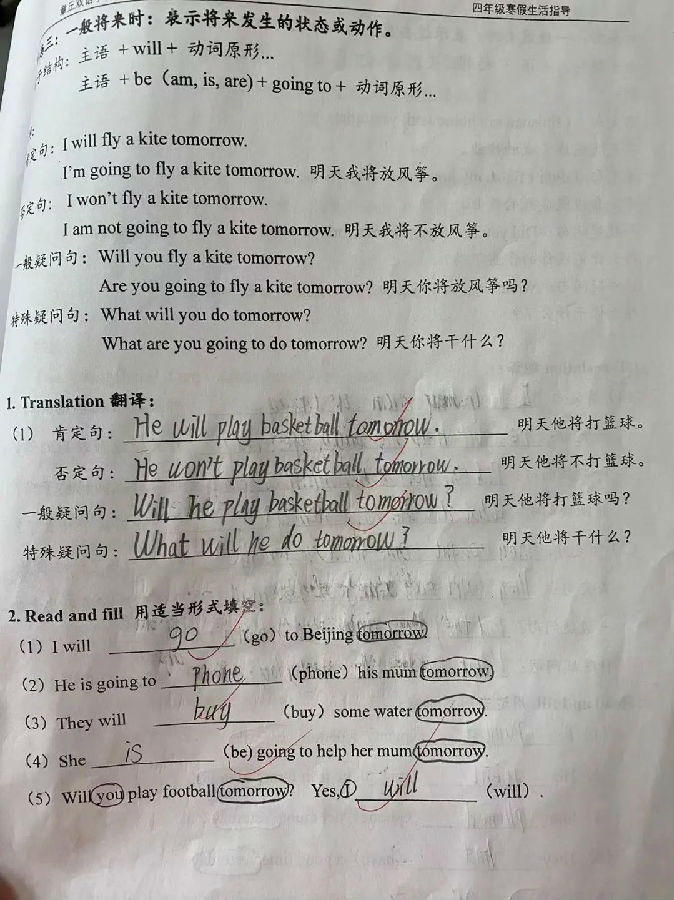 四年级寒假生活指导
三：一般将来时：表示将来发生的状态或动作。
结构：主语 + will + 动词原形...
主语 + be（am, is, are) + going to + 动词原形...
定句：I will fly a kite tomorrow.
I'm going to fly a kite tomorrow. 明天我将放风筝。
否定句：I won't fly a kite tomorrow.
I am not going to fly a kite tomorrow. 明天我将不放风筝。
一般疑问句：Will you fly a kite tomorrow?
Are you going to fly a kite tomorrow? 明天你将放风筝吗？
特殊疑问句：What will you do tomorrow?
What are you going to do tomorrow? 明天你将干什么？
1. Translation 翻译：
（1） 肯定句：He will play basketball tomorrow. 明天他将打篮球。
否定句：He won't play basketball tomorrow. 明天他将不打篮球。
一般疑问句：Will he play basketball tomorrow? 明天他将打篮球吗？
特殊疑问句：What will he do tomorrow? 明天他将干什么？
2. Read and fill 用适当形式填空：
（1）I will go （go）to Beijing tomorrow.
（2）He is going to phone （phone）his mum tomorrow.
（3）They will buy （buy）some water tomorrow.
（4）She is （be) going to help her mum tomorrow.
（5）Will you play football tomorrow? Yes, I will （will）.